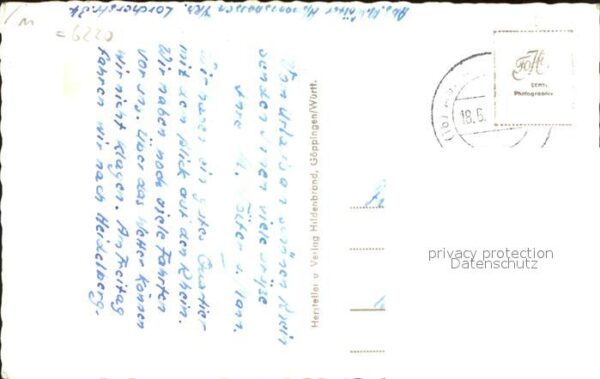 Vom Urlaub am schönen Rhein
senden Ihnen viele Grüße
Ihre M.
Wir haben ein gutes Quartier
mit dem Blick auf den Rhein.
Wir haben noch viele Fahrten
vor uns. Über das Wetter können
wir nicht klagen. Am Freitag
fahren wir nach Heidelberg.
Abs.
Lorcherstr.
=6220
Hersteller u Verlag Hildenbrand, Göppingen/Württ.
18.6.
echte
Photographie
privacy protection
Datenschutz